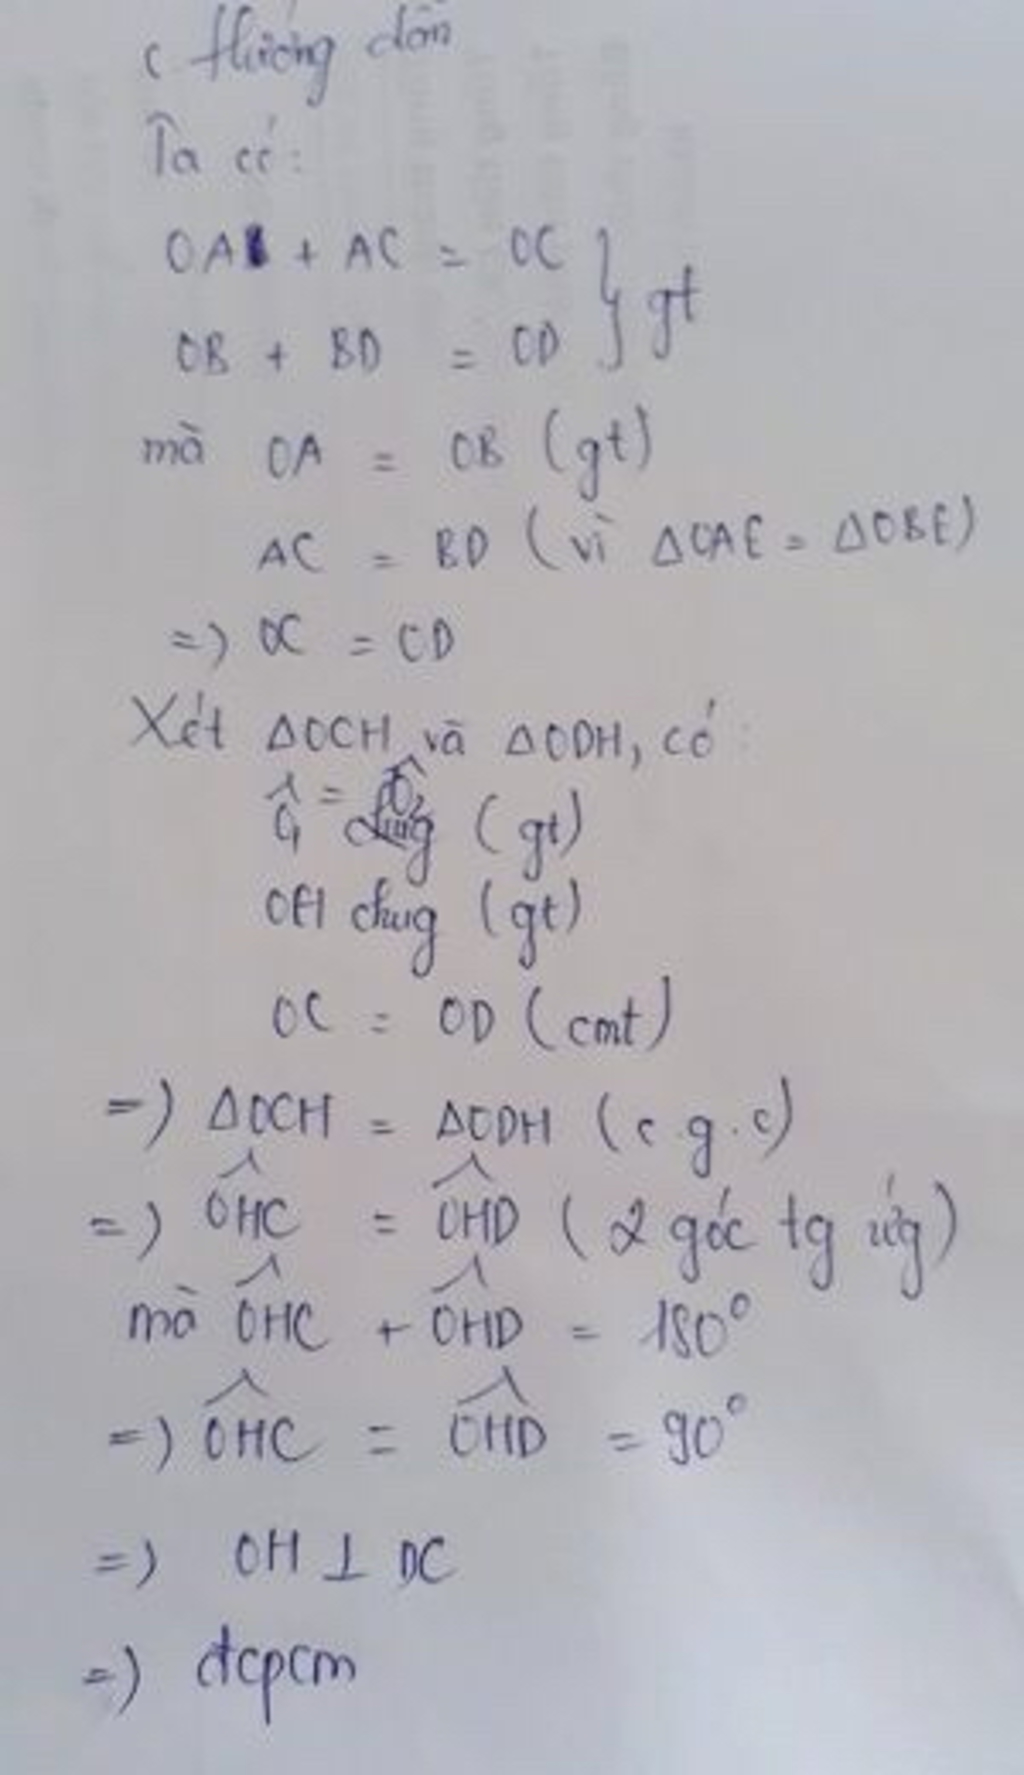 c Hướng dẫn
Ta có:
OA + AC = OC
OB + BD = OD } gt
mà OA = OB (gt)
AC = BD (vì ΔOAE = ΔOBE)
=) OC = OD
Xét ΔOCH và ΔODH, có:
Ô₁ = Ô₂ (gt)
OH chug (gt)
OC = OD (cmt)
=) ΔOCH = ΔODH (c g.c)
=) OHC^ = OHD^ (2 góc tg ứg)
mà OHC^ + OHD^ = 180°
=) OHC^ = OHD^ = 90°
=) OH ⊥ DC
=) đcpcm